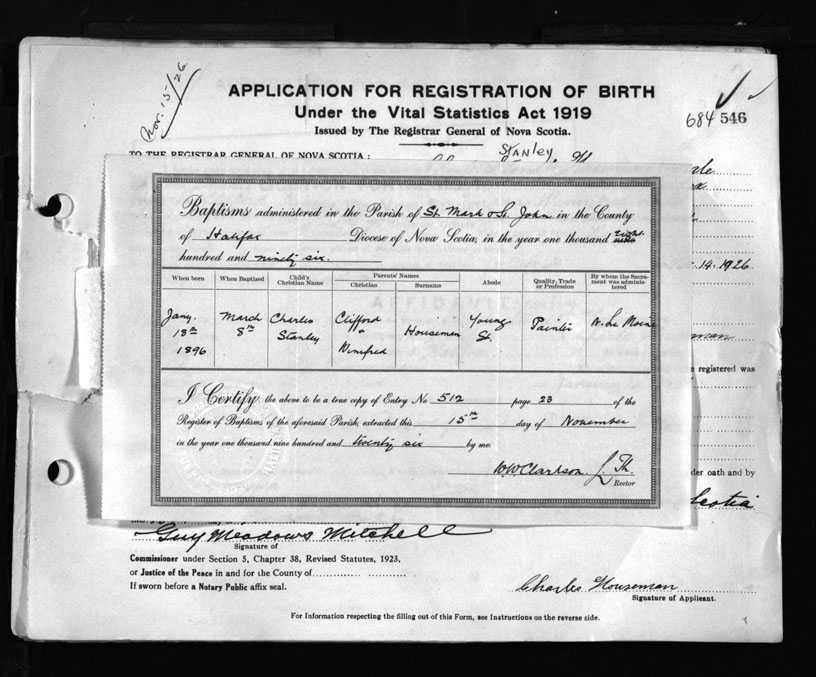 Nov. 15/26
APPLICATION FOR REGISTRATION OF BIRTH
Under the Vital Statistics Act 1919
Issued by The Registrar General of Nova Scotia.
684 546
TO THE REGISTRAR GENERAL OF NOVA SCOTIA:
Stanley
Baptisms administered in the Parish of St. Mark & St. John in the County
of Halifax Diocese of Nova Scotia, in the year one thousand eight
hundred and ninety six.
14. 1926
When born When Baptized Child's Christian Name Parents' Names Christian Surname Abode Quality, Trade or Profession By whom the Sacrament was administered
Jany. 18th 1896 March 8th Charles Stanley Clifford + Winifred Houseman Young St. Painter N. Le Moine
registered was
I Certify the above to be a true copy of Entry No 512 page 23 of the
Register of Baptisms of the aforesaid Parish, extracted this 15th day of November
in the year one thousand nine hundred and twenty six by me.
W.W. Clarkson L. Th.
Rector
der oath and by
Guy Meadows Mitchell
Signature of
Commissioner under Section 5, Chapter 38, Revised Statutes, 1923,
or Justice of the Peace in and for the County of
If sworn before a Notary Public affix seal.
Charles Houseman
Signature of Applicant.
For Information respecting the filling out of this Form, see Instructions on the reverse side.